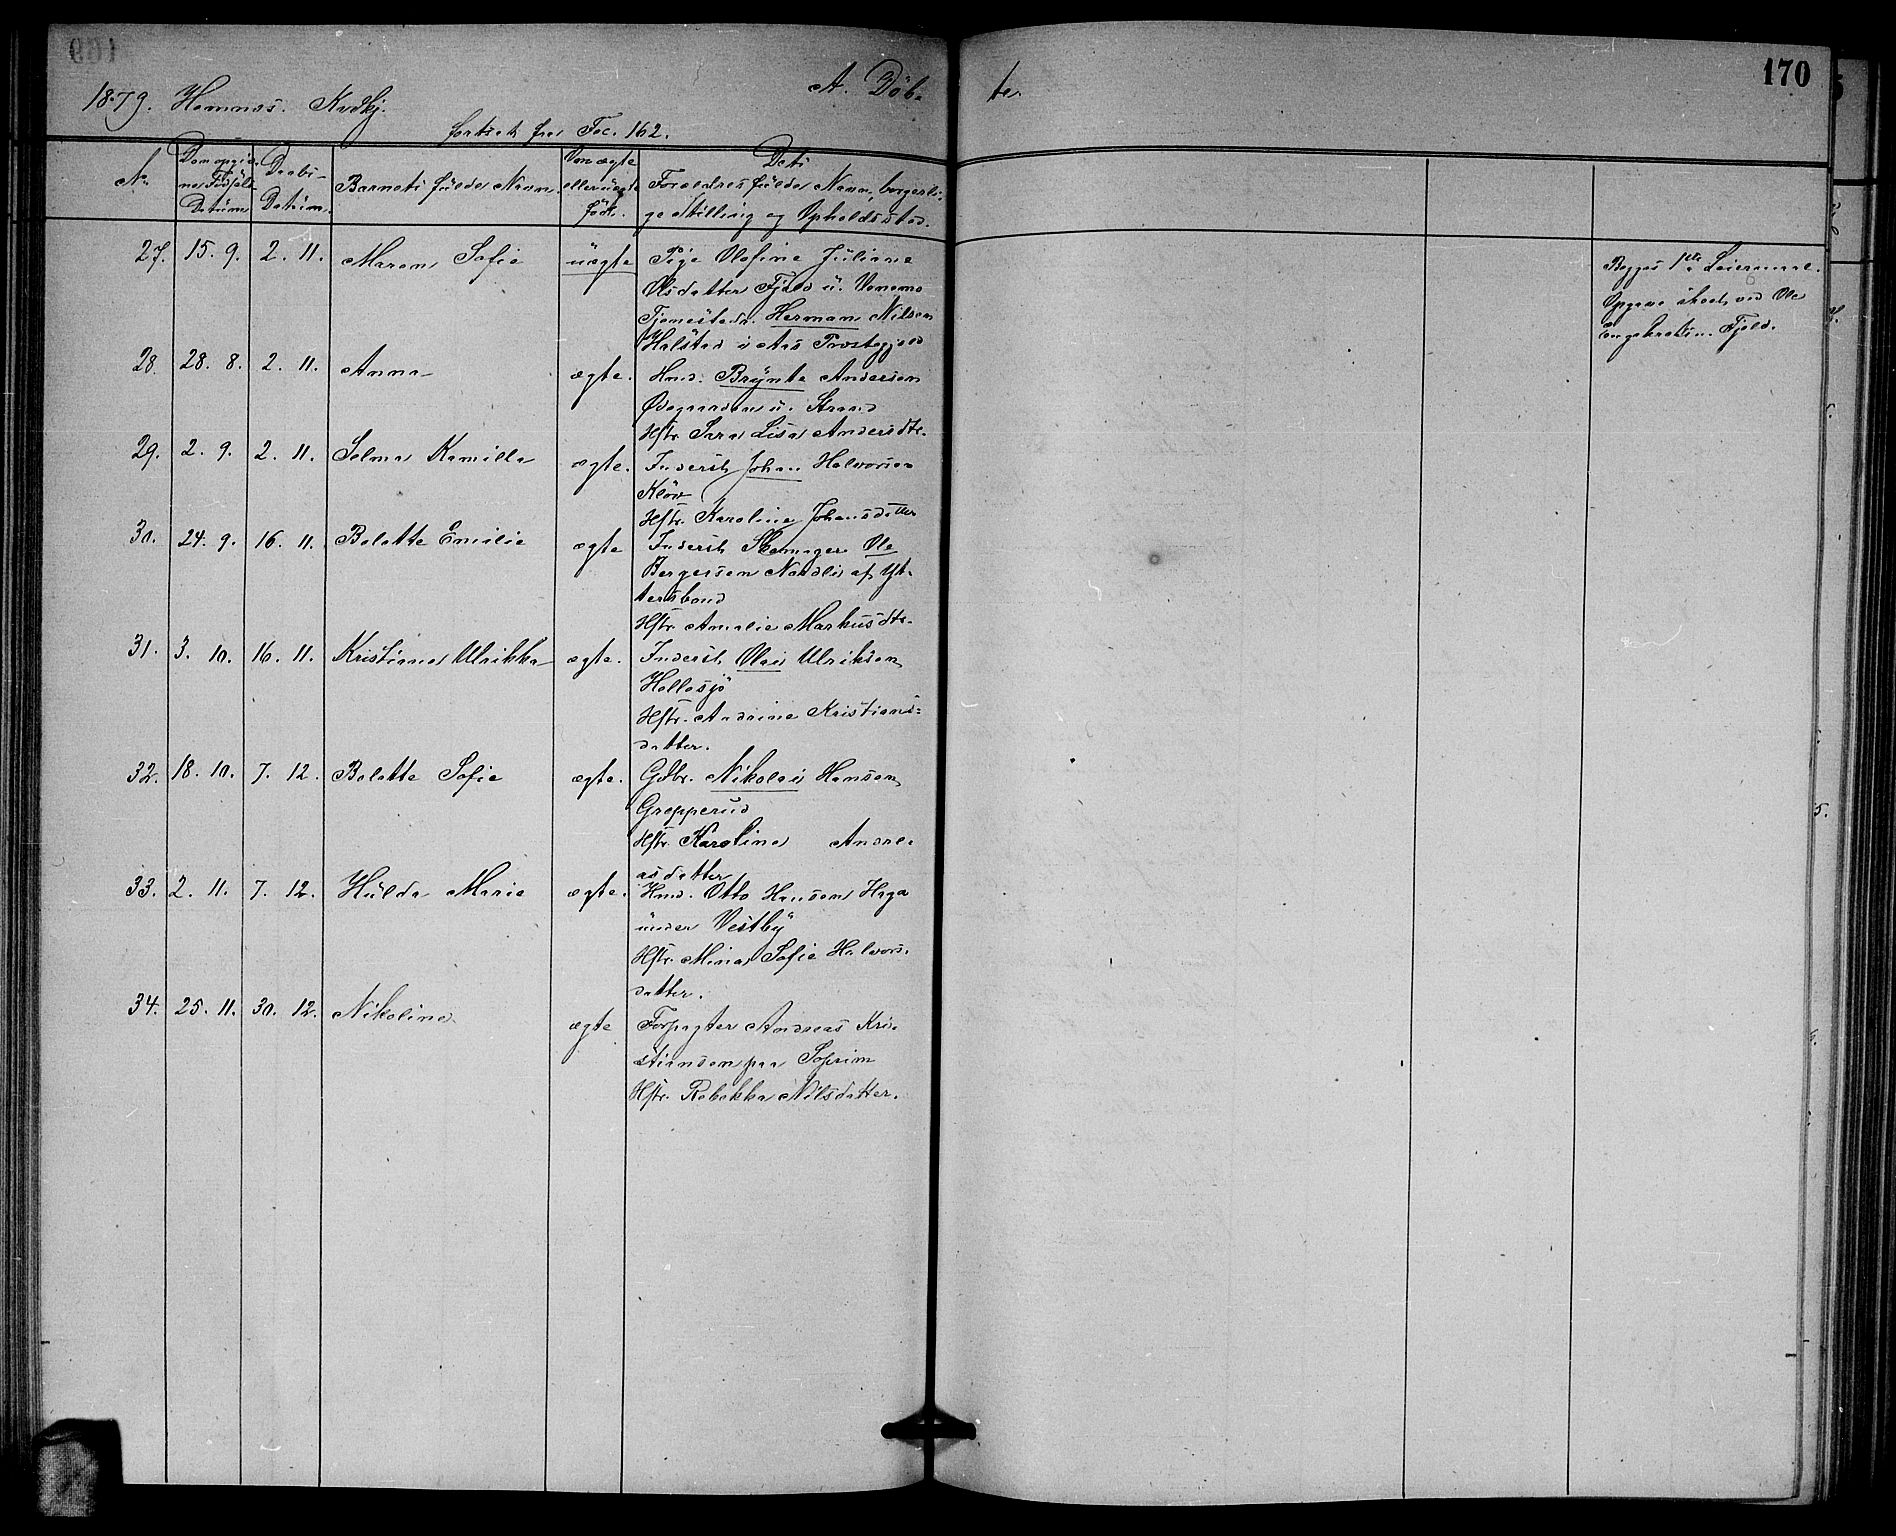 170
1879. Hemnæs. Kvdkj. A. Döb- te.
fortsat fra Foc. 162.
No Den opgiv- Daabs- Barnets fulde Navn. Om ægte Dets
ne Födsels Datum. eller uægte Forældres fulde Navn, borgerli-
Datum född. ge Stilling og Opholdssted.
27. 15. 9. 2. 11. Maren Sofie uægte Pige Olefine Juliane
Olsdatter Fjeld u.
Tjenestedr. Herman Nilsen
Halstad i Aas Præstegjeld
Begges 1ste Leiermaal.
Opgave skeet ved Ole
Engebretsen Fjeld.
28. 28. 8. 2. 11. Anna ægte. Hmd. Brynte Andersen
Ödegaarden u. Strand
Hstr. Sara Lisa Andersdtr.
29. 2. 9. 2. 11. Selma Kamilla ægte. Inderst Johan Halvorsen
Klöv
Hstr. Karoline Johansdatter
30. 24. 9. 16. 11. Belatte Emilie ægte Inderst Skomager Ole
Bergersen Nordli af Yt-
tersbond
Hstr. Amalie Markusdtr.
31. 3. 10. 16. 11. Kristiane Ulrikka ægte. Inderst Olai Ulriksen
Hellesjö
Hstr. Andrine Kristians-
datter.
32. 18. 10. 7. 12. Belatte Sofie ægte. Gdbr. Nikolai Hansen
Grepperud
Hstr. Karoline Andre-
asdatter
33. 2. 11. 7. 12. Hulda Marie ægte. Hmd. Otto Hansen Haga
under Vestby
Hstr. Mina Sofie Halvors-
datter.
34. 25. 11. 30. 12. Nikoline ægte Forpagter Andreas Kri-
stiansen paa Soprim
Hstr. Rebekka Nilsdatter.